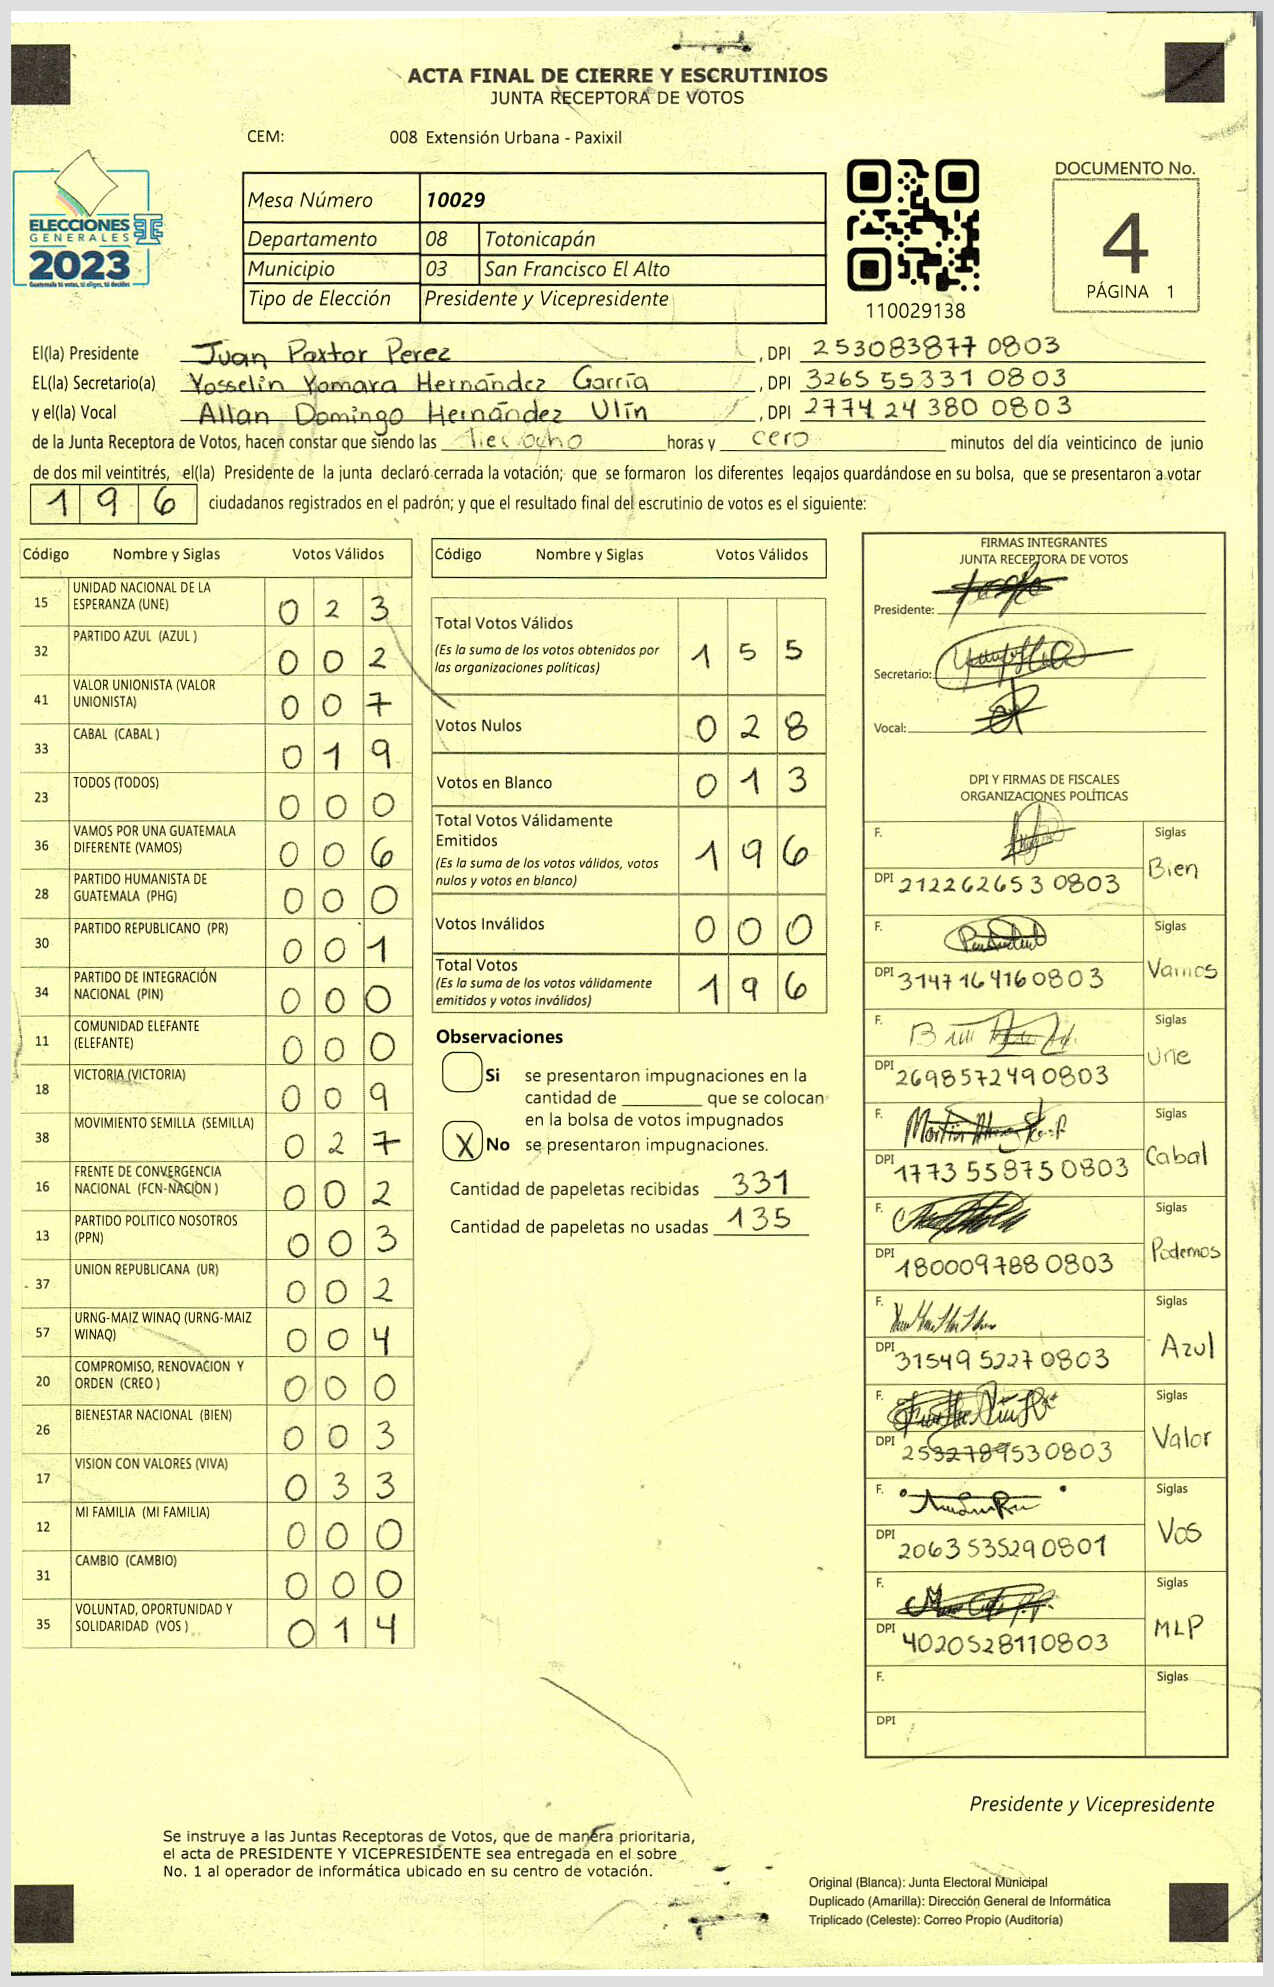 ACTA FINAL DE CIERRE Y ESCRUTINIOS
JUNTA RECEPTORA DE VOTOS
CEM: 008 Extensión Urbana - Paxixil
ELECCIONES
GENERALES
2023
Guatemala tú votas, tú eliges, tú decides
Mesa Número 10029
Departamento 08 Totonicapán
Municipio 03 San Francisco El Alto
Tipo de Elección Presidente y Vicepresidente
110029138
DOCUMENTO No.
4
PÁGINA 1
El(la) Presidente Juan Paxtor Perez, DPI 253083877 0803
EL(la) Secretario(a) Yosselin Yomara Hernández García, DPI 3265 55331 0803
y el(la) Vocal Allan Domingo Hernández Ulín, DPI 2774 24 380 0803
de la Junta Receptora de Votos, hacen constar que siendo las horas y cero minutos del día veinticinco de junio
de dos mil veintitrés, el(la) Presidente de la junta declaró cerrada la votación; que se formaron los diferentes legajos guardándose en su bolsa, que se presentaron a votar
196 ciudadanos registrados en el padrón; y que el resultado final del escrutinio de votos es el siguiente:
Código Nombre y Siglas Votos Válidos
15 UNIDAD NACIONAL DE LA ESPERANZA (UNE) 0 2 3
32 PARTIDO AZUL (AZUL ) 0 0 2
41 VALOR UNIONISTA (VALOR UNIONISTA) 0 0 7
33 CABAL (CABAL ) 0 1 9
23 TODOS (TODOS) 0 0 0
36 VAMOS POR UNA GUATEMALA DIFERENTE (VAMOS) 0 0 6
28 PARTIDO HUMANISTA DE GUATEMALA (PHG) 0 0 0
30 PARTIDO REPUBLICANO (PR) 0 0 1
34 PARTIDO DE INTEGRACIÓN NACIONAL (PIN) 0 0 0
11 COMUNIDAD ELEFANTE (ELEFANTE) 0 0 0
18 VICTORIA (VICTORIA) 0 0 9
38 MOVIMIENTO SEMILLA (SEMILLA) 0 2 7
16 FRENTE DE CONVERGENCIA NACIONAL (FCN-NACION ) 0 0 2
13 PARTIDO POLITICO NOSOTROS (PPN) 0 0 3
37 UNION REPUBLICANA (UR) 0 0 2
57 URNG-MAIZ WINAQ (URNG-MAIZ WINAQ) 0 0 4
20 COMPROMISO, RENOVACION Y ORDEN (CREO ) 0 0 0
26 BIENESTAR NACIONAL (BIEN) 0 0 3
17 VISION CON VALORES (VIVA) 0 3 3
12 MI FAMILIA (MI FAMILIA) 0 0 0
31 CAMBIO (CAMBIO) 0 0 0
35 VOLUNTAD, OPORTUNIDAD Y SOLIDARIDAD (VOS ) 0 1 4
Código Nombre y Siglas Votos Válidos
Total Votos Válidos 1 5 5
(Es la suma de los votos obtenidos por
las organizaciones políticas)
Votos Nulos 0 2 8
Votos en Blanco 0 1 3
Total Votos Válidamente
Emitidos 1 9 6
(Es la suma de los votos válidos, votos
nulos y votos en blanco)
Votos Inválidos 0 0 0
Total Votos 1 9 6
(Es la suma de los votos válidamente
emitidos y votos inválidos)
Observaciones
Si se presentaron impugnaciones en la
cantidad de que se colocan
en la bolsa de votos impugnados
X No se presentaron impugnaciones.
Cantidad de papeletas recibidas 331
Cantidad de papeletas no usadas 135
FIRMAS INTEGRANTES
JUNTA RECEPTORA DE VOTOS
Presidente:
Secretario:
Vocal:
DPI Y FIRMAS DE FISCALES
ORGANIZACIONES POLÍTICAS
F. Siglas
DPI 212262653 0803 Bien
F. Siglas
DPI 3147 164160803 Vamos
F. Siglas
DPI 2698572490803 Une
F. Siglas
DPI 1773 55875 0803 Cabal
F. Siglas
DPI 180009788 0803 Podemos
F. Siglas
DPI 31549 5227 0803 Azul
F. Siglas
DPI 2532789530803 Valor
F. Siglas
DPI 2063 53529 0801 Vos
F. Siglas
DPI 4020528110803 MLP
F. Siglas
DPI
Presidente y Vicepresidente
Se instruye a las Juntas Receptoras de Votos, que de manera prioritaria,
el acta de PRESIDENTE Y VICEPRESIDENTE sea entregada en el sobre
No. 1 al operador de informática ubicado en su centro de votación.
Original (Blanca): Junta Electoral Municipal
Duplicado (Amarilla): Dirección General de Informática
Triplicado (Celeste): Correo Propio (Auditoría)